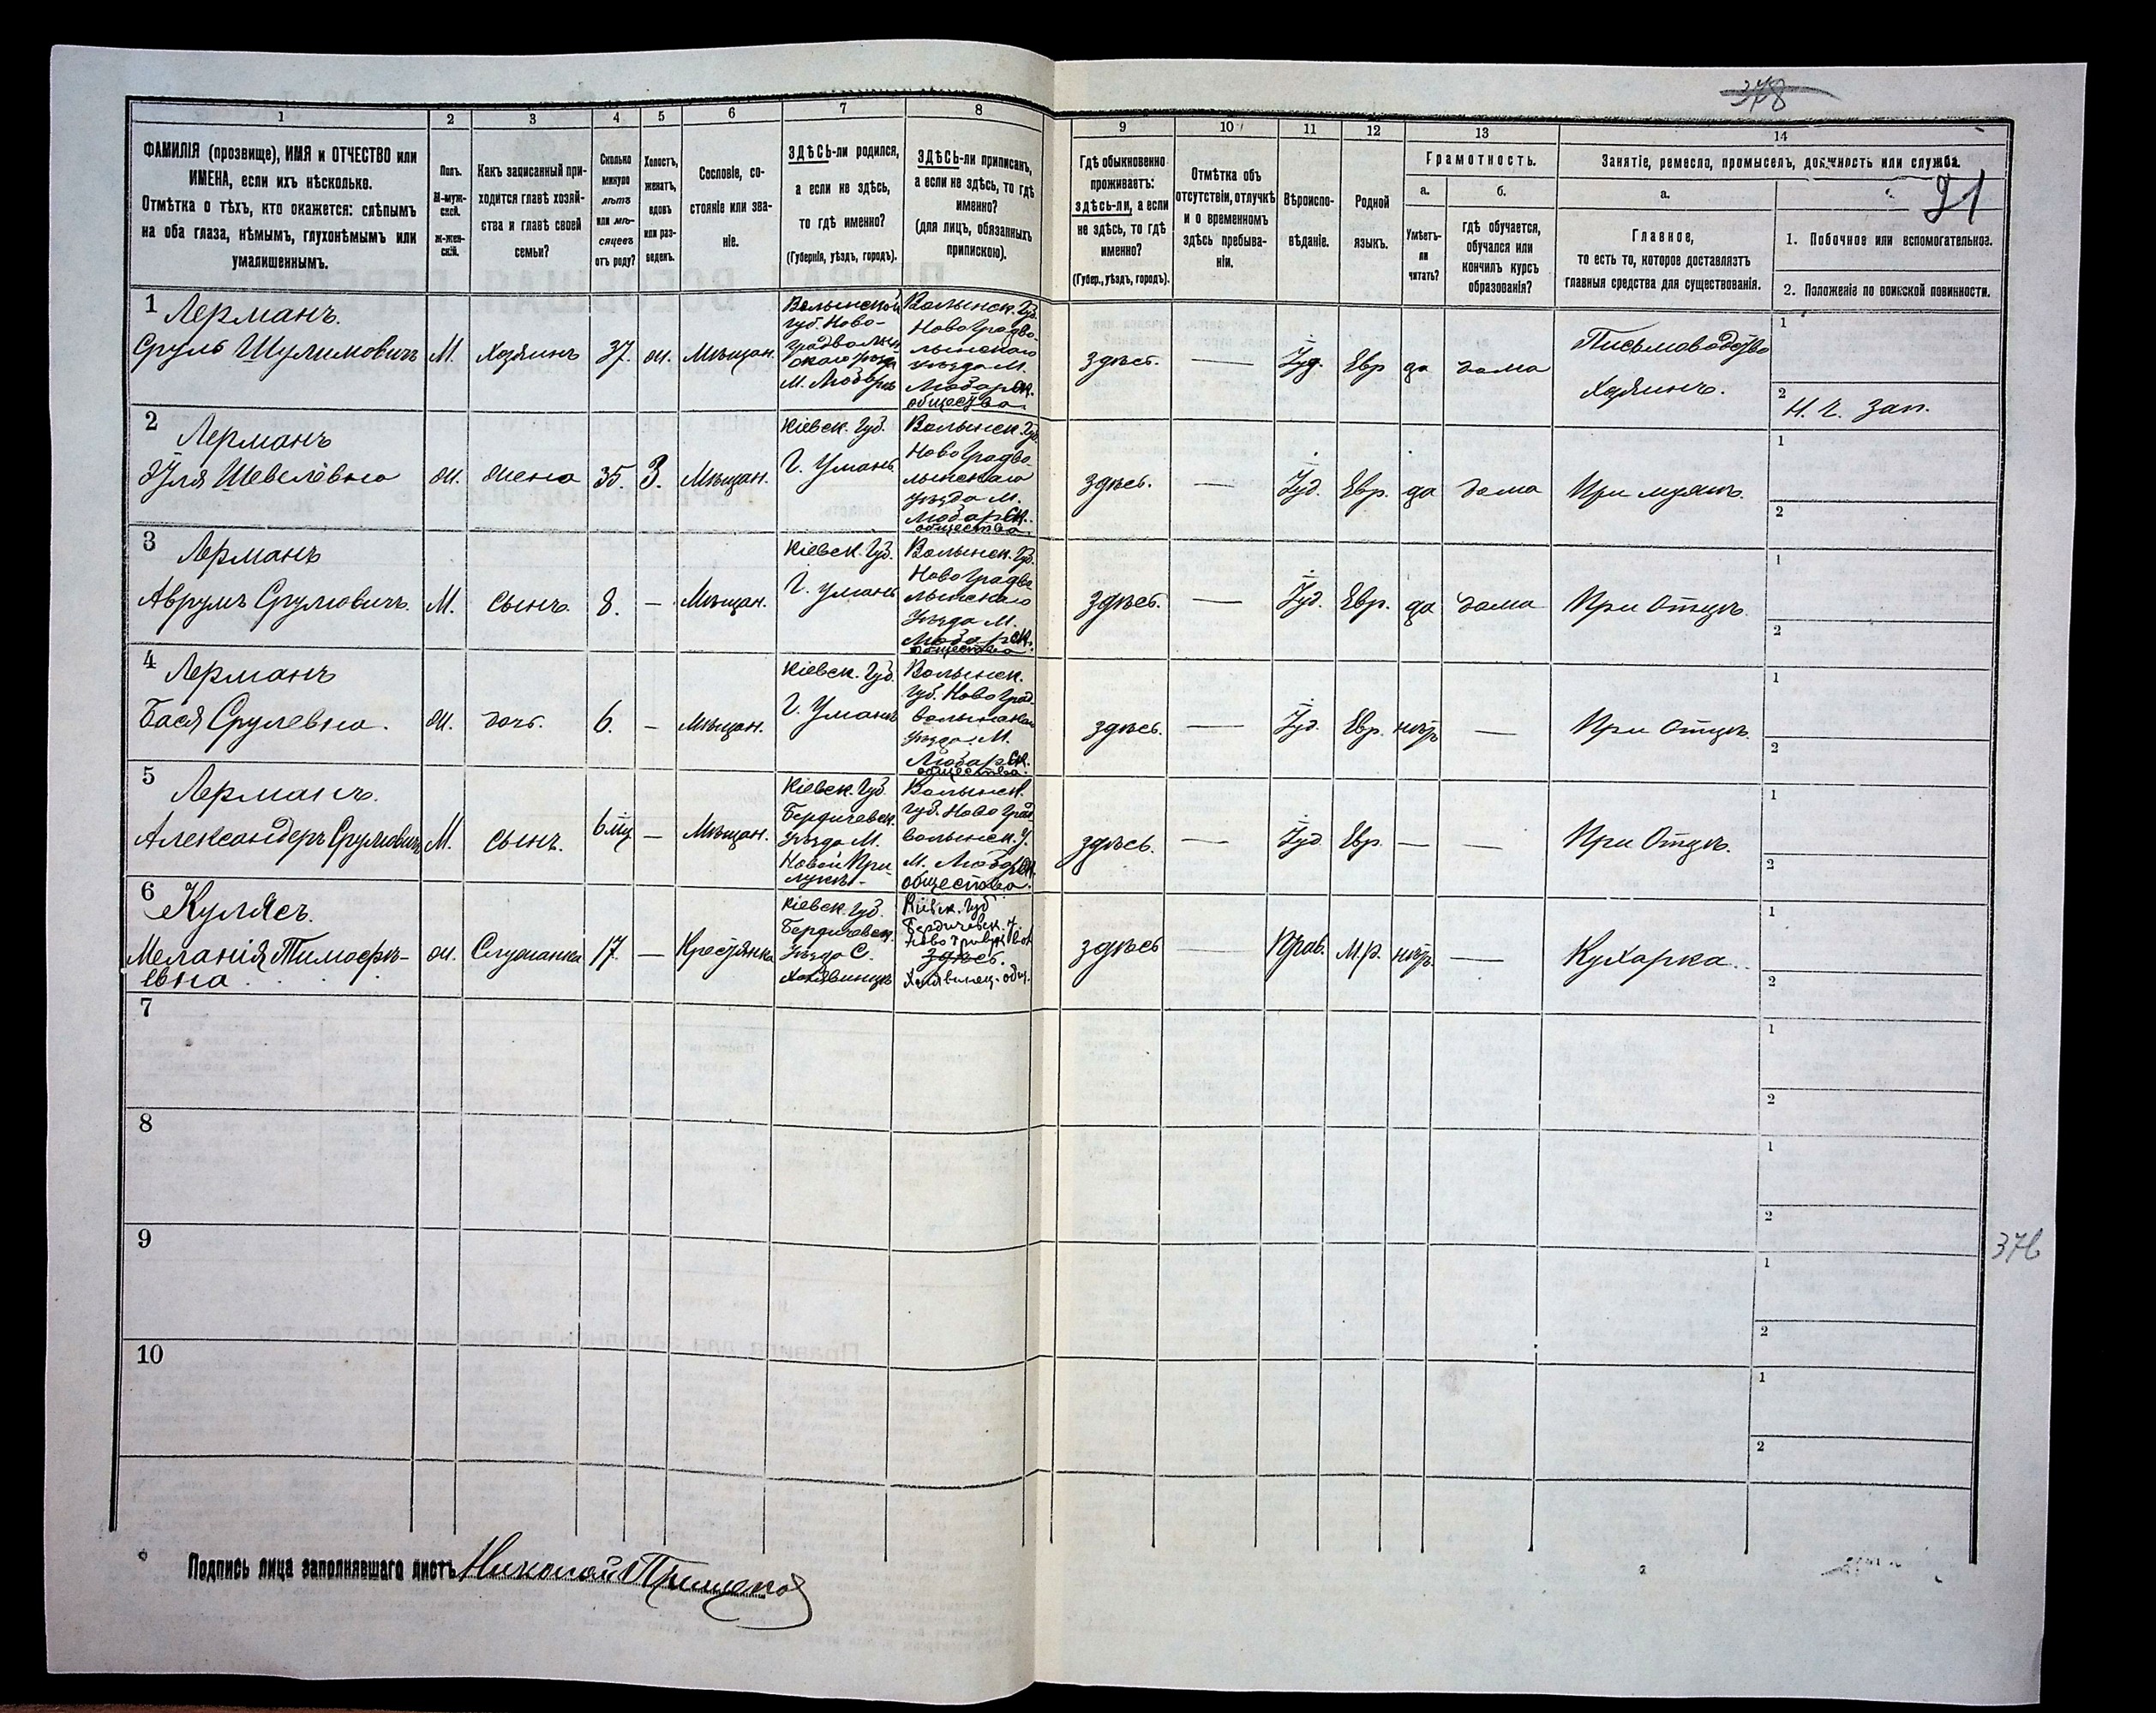 378
21
1 2 3 4 5 6 7 8 9 10 11 12 13 14
ФАМИЛІЯ (прозвище), ИМЯ и ОТЧЕСТВО или
ИМЕНА, если ихъ нѣсколько.
Отмѣтка о тѣхъ, кто окажется: слѣпымъ
на оба глаза, нѣмымъ, глухонѣмымъ или
умалишеннымъ.
Полъ.
М-муж-
ской.
Ж-жен-
скій.
Какъ записанный при-
ходится главѣ хозяй-
ства и главѣ своей
семьи?
Сколько
минуло
лѣтъ
или мѣ-
сяцевъ
отъ роду?
Холостъ,
женатъ,
вдовъ
или раз-
веденъ.
Сословіе, со-
стояніе или зва-
ніе.
ЗДѢСЬ-ли родился,
а если не здѣсь,
то гдѣ именно?
(Губернія, уѣздъ, городъ).
ЗДѢСЬ-ли приписанъ,
а если не здѣсь, то гдѣ
именно?
(для лицъ, обязанныхъ
припискою).
Гдѣ обыкновенно
проживаетъ:
здѣсь-ли, а если
не здѣсь, то гдѣ
именно?
(Губер., уѣздъ, городъ).
Отмѣтка объ
отсутствіи, отлучкѣ
и о временномъ
здѣсь пребыва-
ніи.
Вѣроиспо-
вѣданіе.
Родной
языкъ.
Грамотность.
а.
Умѣетъ-
ли
читать?
б.
гдѣ обучается,
обучался или
кончилъ курсъ
образованія?
Занятіе, ремесло, промыселъ, должность или служба.
а.
Главное,
то есть то, которое доставляетъ
главныя средства для существованія.
1. Побочное или вспомогательное.
2. Положеніе по воинской повинности.
1 Лерманъ.
Сруль Шулимовичъ
М.
Хозяинъ
37.
ж.
Мѣщан.
Волынской
губ. Ново-
градволын
скаго уѣзда
М. Любаръ
Волынск. Губ.
НовоГрадво-
лынскаго
уѣзда М.
Любарск.
общества.
здѣсь.
—
Іуд.
Евр
да
дома
Письмоводство
Хозяинъ.
1
2
Н. ч. зап.
2 Лерманъ
Шевелёвна
ж.
жена
35.
З.
Мѣщан.
Кіевск. Губ.
Г. Умань
Волынск. Губ.
НовоГрадво-
лынскаго
Уѣзда М.
Любарск.
общества
здѣсь.
—
Іуд.
Евр.
да
дома
При мужѣ.
1
2
3 Лерманъ
Аврумъ Срулювичъ.
М.
Сынъ
8.
—
Мѣщан.
Кіевск. Губ.
Г. Умань
Волынск. Губ.
НовоГрадво
лынскаго
Уѣзда М.
Любарск.
общества
здѣсь.
—
Іуд.
Евр.
да
дома
При Отцѣ.
1
2
4 Лерманъ
Бася Срулевна.
ж.
дочь.
6.
—
Мѣщан.
Кіевск. Губ.
Г. Умань
Волынск.
Губ. НовоГрад
волынскаго
Уѣзда. М.
Любарск.
общества.
здѣсь.
—
Іуд.
Евр.
нѣтъ
—
При Отцѣ.
1
2
5 Лерманъ.
Александеръ Срулювичъ
М.
сынъ.
6 мц
—
Мѣщан.
Кіевск. Губ.
Бердичевск.
Уѣзда М.
Новой При
лукѣ.
Волынск.
Губ. НовоГрад
волынск. У.
М. Любарск.
общества.
здѣсь.
—
Іуд.
Евр.
—
—
При Отцѣ.
1
2
6 Кулясъ.
Меланія Тимофѣ-
евна
ж.
Служанка
17.
—
Крестьянка
Кіевск. Губ.
Бердичевск.
Уѣзда С.
Кіевск. Губ
Бердичевск. У.
здѣсь.
общ.
здѣсь
—
Прав.
М.р.
нѣтъ.
—
Кухарка.
1
2
7
1
2
8
1
2
9
1
2
376
10
1
2
Подпись лица заполнявшаго листъ Николай